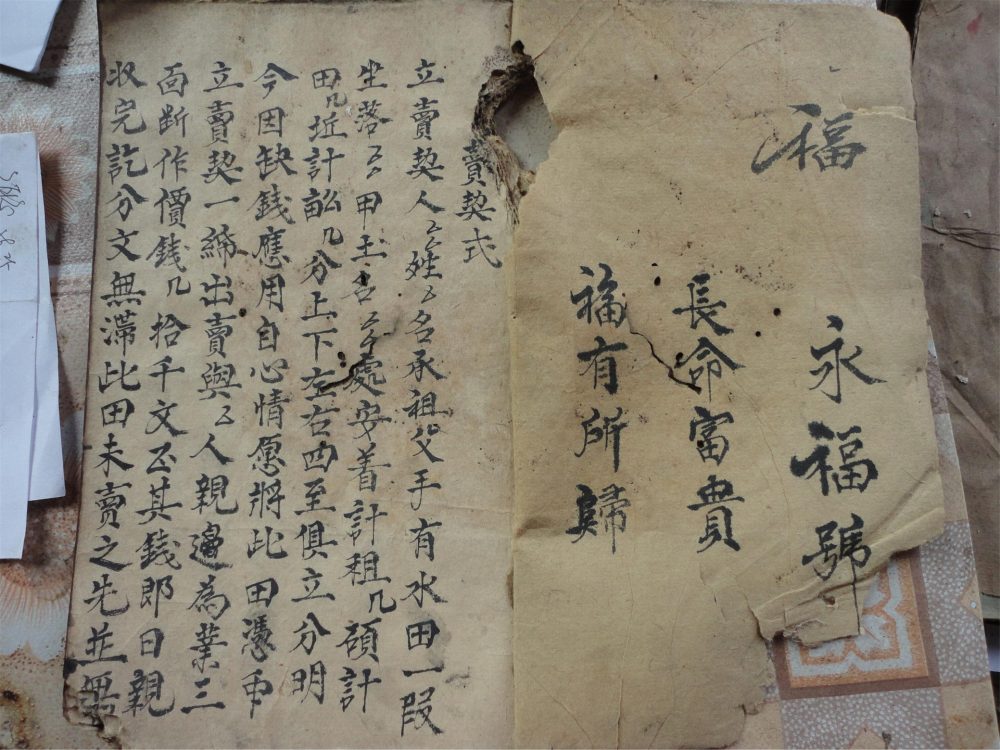 福
永福號
長命富貴
福有所歸
賣契式
立賣契人厶姓厶名承祖父手有水田一段
坐落厶甲土名厶處安着計租几碩計
田几坵計畝几分上下左右四至俱立分明
今因缺錢應用自心情愿將此田憑中
立賣契一締出賣與厶人親邊為業三
面断作價錢几拾千文正其錢即日親
收完訖分文無滞此田未賣之先並無